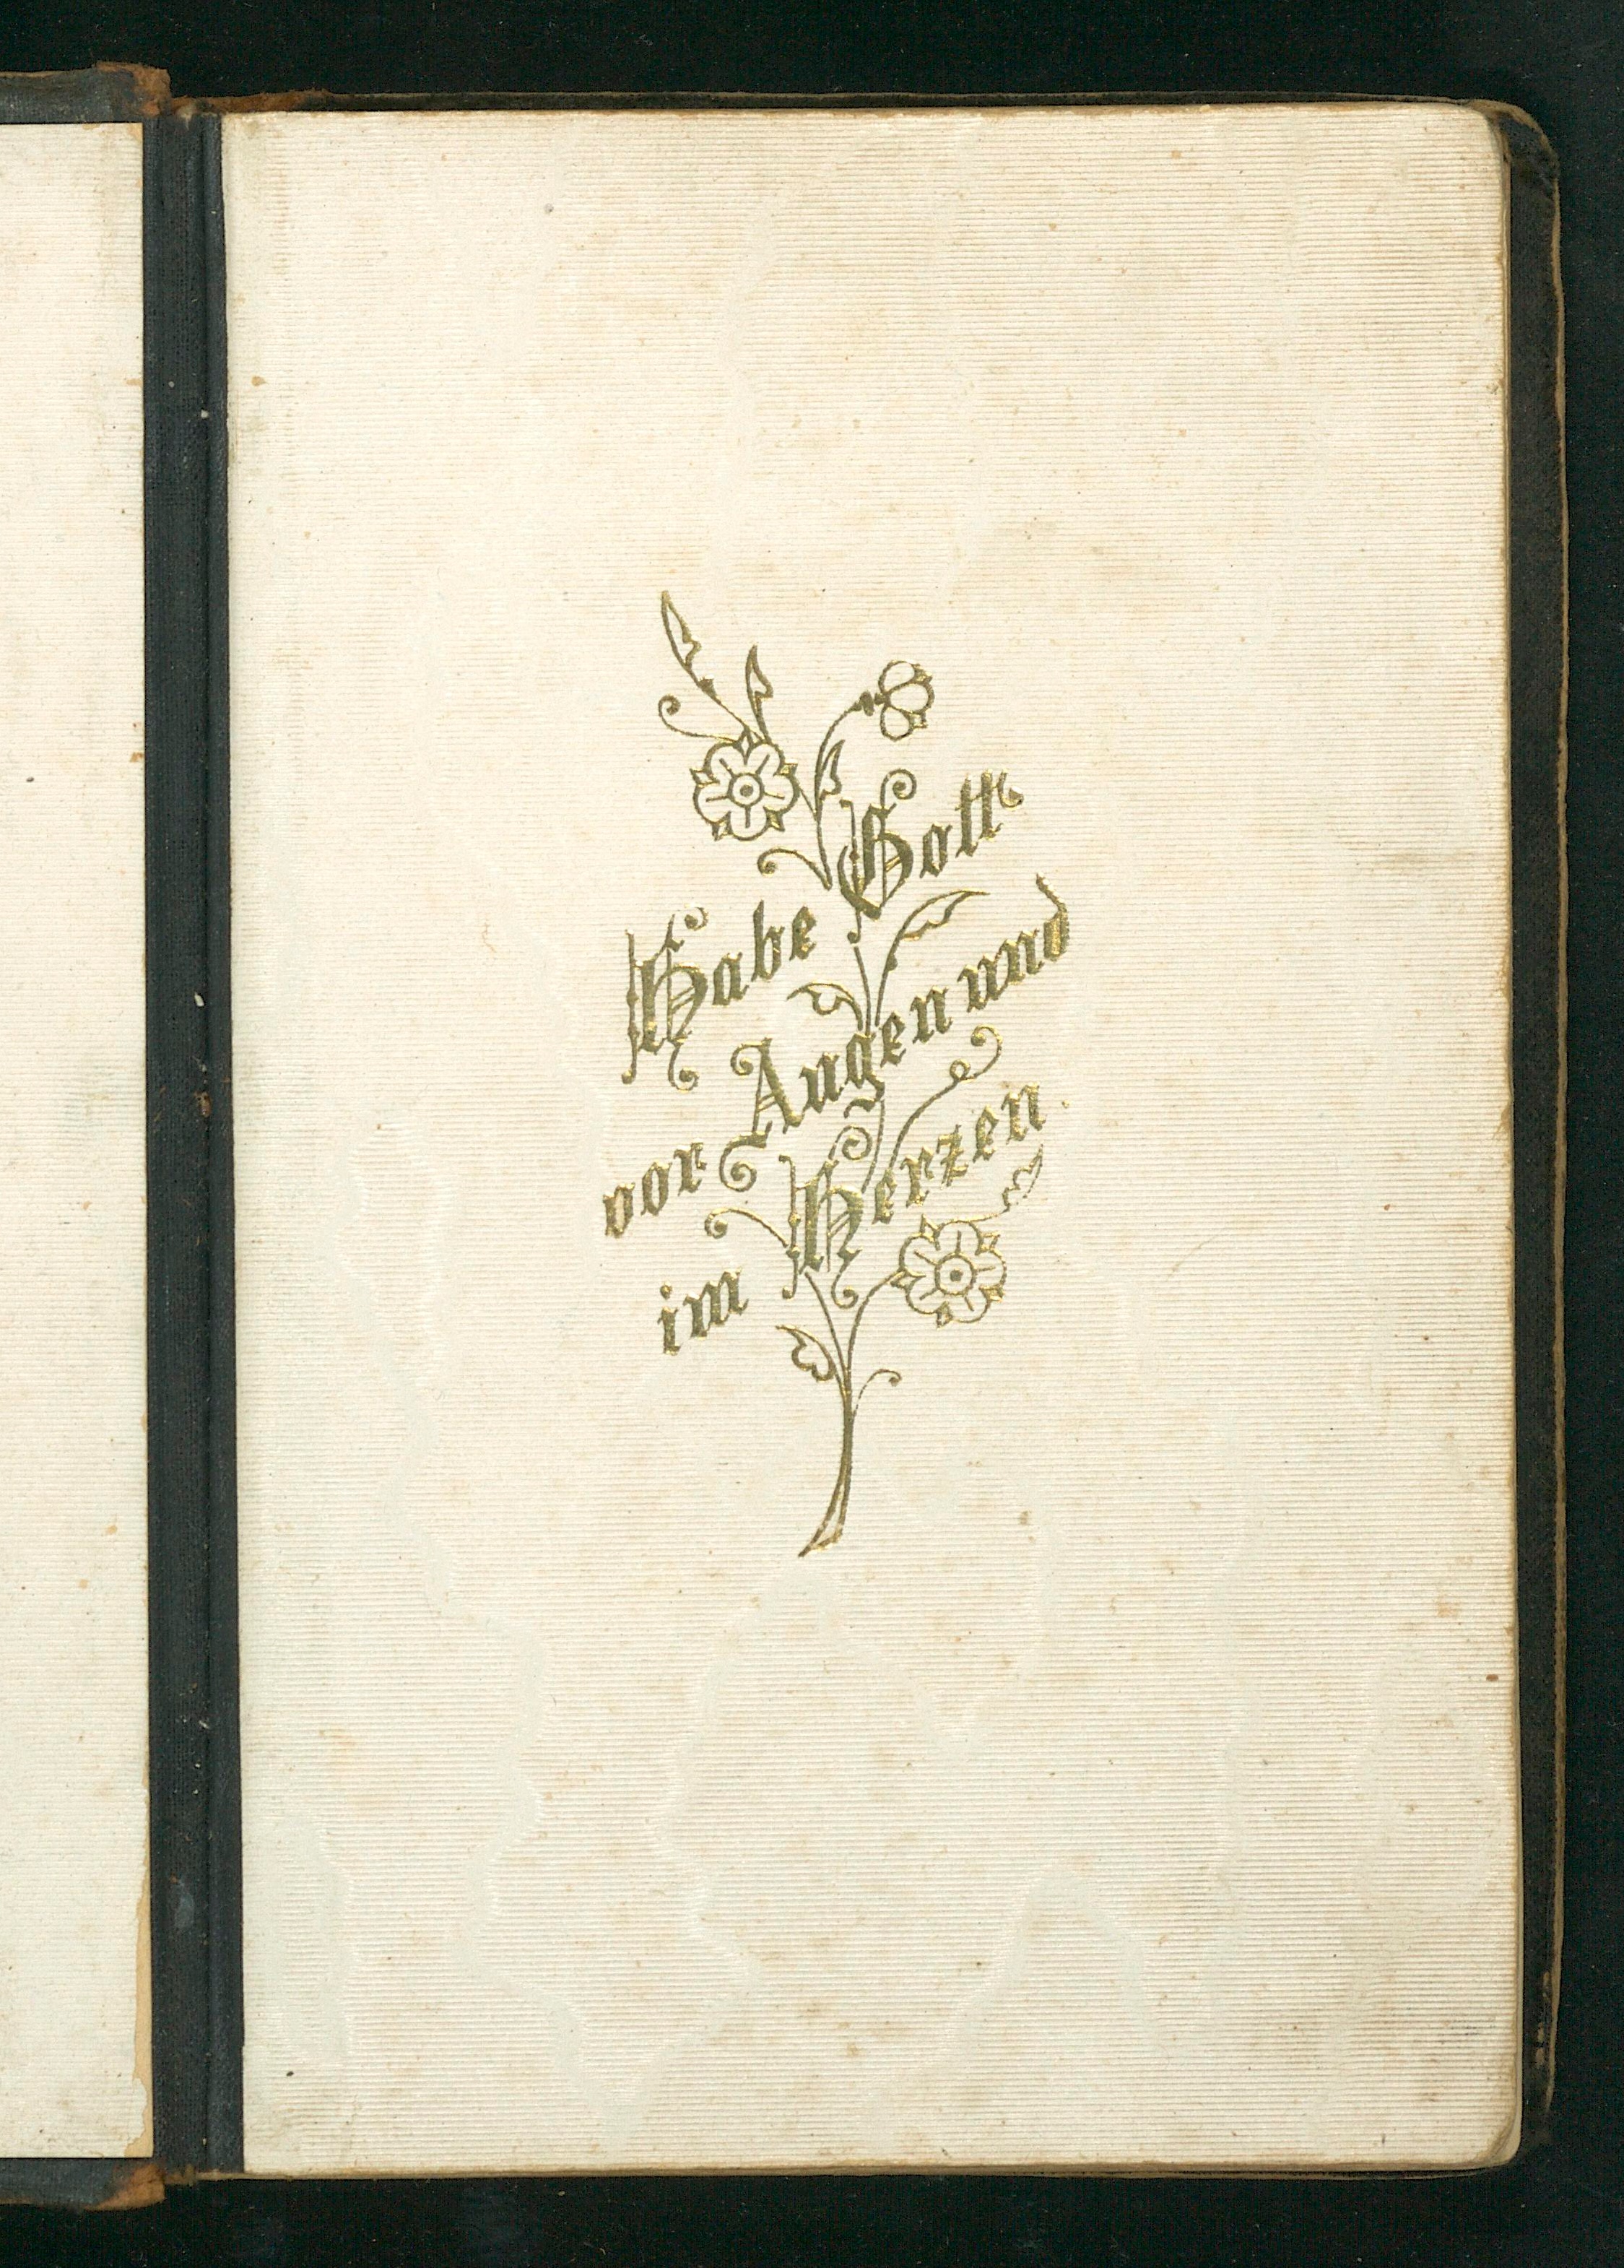 Habe Gott
vor Augen und
im Herzen